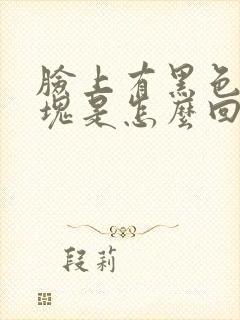 臉上有黑色
塊是怎麼回
段莉